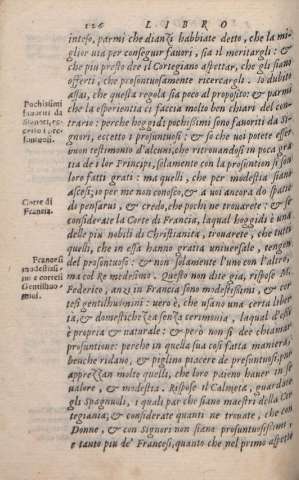 126 LIBRO
inteso, parmi che dianzi habbiate detto, che la mi-
glior uia per conseguir fauori, sia il meritargli: &
che piu presto dee il Cortegiano aspettar, che gli siano
offerti, che prosontuosamente ricercargli. Io dubito
assai, che questa regola sia poco al proposito: & parmi
che la esperientia ci faccia molto ben chiari del con-
trario: perche hoggidi pochissimi sono fauoriti da Si-
gnori, eccetto i prosuntuosi: & so che uoi potete esser
buon testimonio d'alcuni, che ritrouandosi in poca gra
tia de i lor Principi, solamente con la prosontion si son
loro fatti grati: ma quelli, che per modestia siano
ascesi; io per me non conosco, & a uoi ancora do spatio
di pensarui, & credo, che pochi ne trouarete: & se
considerate la Corte di Francia, laqual hoggidi è una
delle piu nobili di Christianità, trouarete, che tutti
quelli, che in essa hanno gratia uniuersale, tengon
del prosuntuoso: & non solamente l'uno con l'altro,
ma col Re medesimo. Questo non dite gia, rispose M.
Federico, anzi in Francia sono modestissimi, & cor
tesi gentilhuomini: uero è, che usano una certa liber
tà, & domestichezza senza cerimonia, laqual d'essi
è propria & naturale: & però non si dee chiamar
prosuntione: perche in quella sua cosi fatta maniera,
benche ridano, & piglino piacere de presuntuosi, pur
apprezzan molto quelli, che loro paieno hauer in se
ualore, & modestia. Rispose il Calmeta, guardate
gli Spagnuoli, i quali par che siano maestri della Cor
tegiania; & considerate quanti ne trouate, che con
Donne, & con Signori non siano prosuntuosissimi;
e tanto piu de' Francesi, quanto che nel primo aspetto
Pochissimi
fauoriti da
Signori, ec-
cetto i pro-
suntuosi.
Corte di
Francia.
Francesi
modestissi-
mi e cortesi
Gentilhuo-
mini.